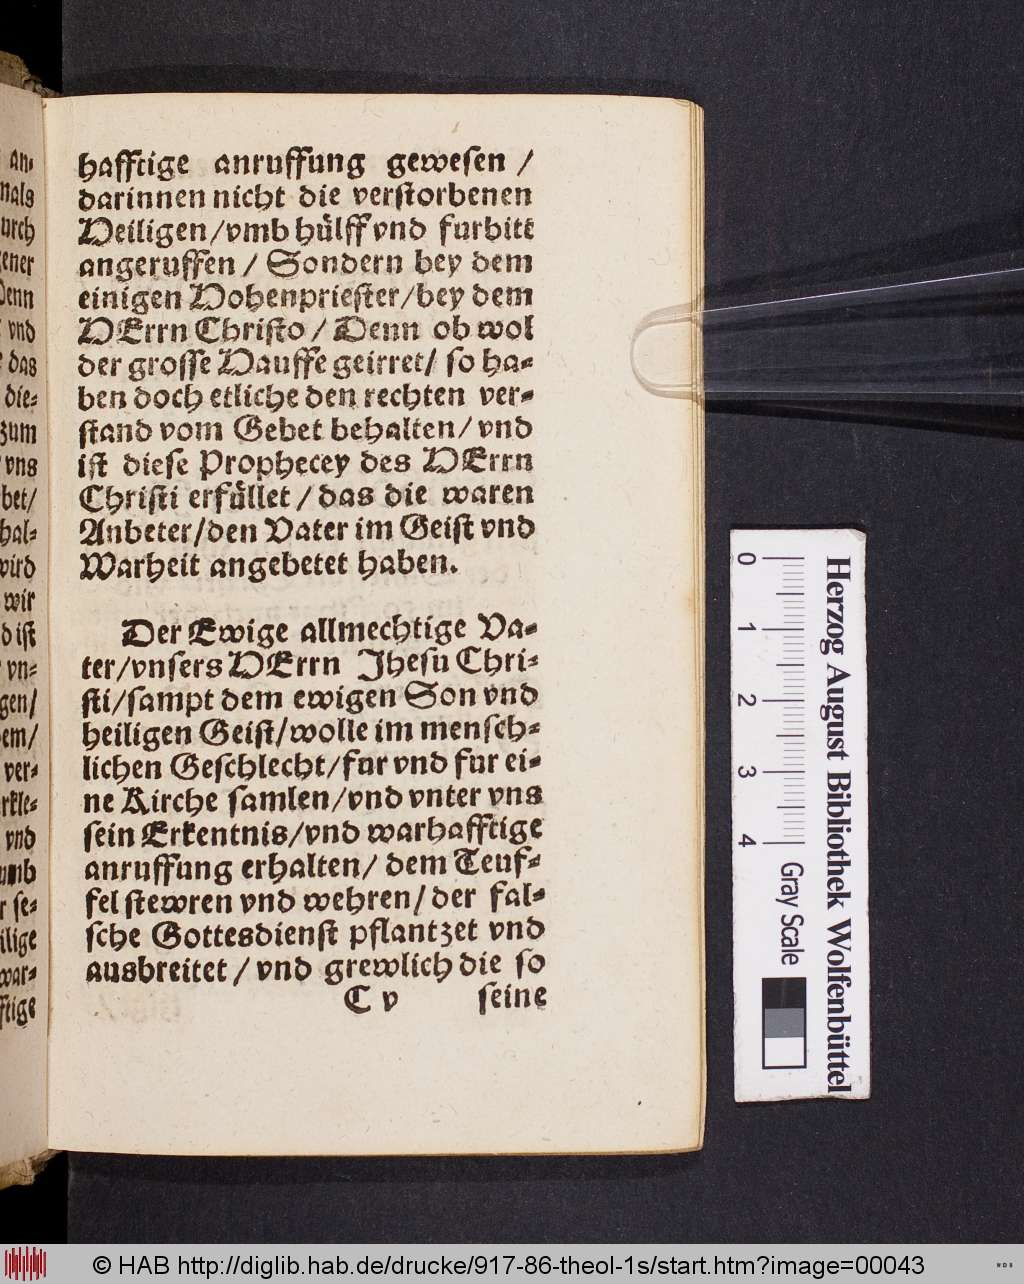 hafftige anruffung gewesen /
darinnen nicht die verstorbenen
Heiligen/vmb hülff vnd furbitt
angeruffen / Sondern bey dem
einigen Hohenpriester/bey dem
HErrn Christo / Denn ob wol
der grosse Hauffe geirret/ so ha-
ben doch etliche den rechten ver-
stand vom Gebet behalten/ vnd
ist diese Prophecey des HErrn
Christi erfüllet / das die waren
Anbeter/den Vater im Geist vnd
Warheit angebetet haben.
Der Ewige allmechtige Va-
ter/vnsers HErrn Jhesu Chri-
sti/sampt dem ewigen Son vnd
heiligen Geist/wolle im mensch-
lichen Geschlecht/fur vnd fur ei-
ne Kirche samlen/vnd vnter vns
sein Erkentnis/vnd warhafftige
anruffung erhalten/ dem Teuf-
fel stewren vnd wehren/ der fal-
sche Gottesdienst pflantzet vnd
ausbreitet / vnd grewlich die so
C v seine
an-
nals
urch
ener
Denn
vnd
das
die-
zum
vns
bet/
hal-
wird
wir
d ist
vn-
gen/
em/
ver-
rkle-
vnd
umb
r se-
ilige
war-
fftige
0 1 2 3 4
Gray Scale
Herzog August Bibliothek Wolfenbüttel
© HAB http://diglib.hab.de/drucke/917-86-theol-1s/start.htm?image=00043